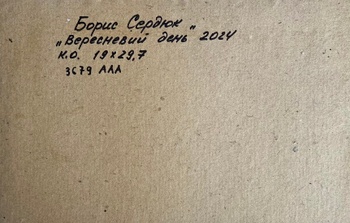 Борис Сердюк „
„Вересневий день 2024
к.о. 19х29,7
3679 ААА